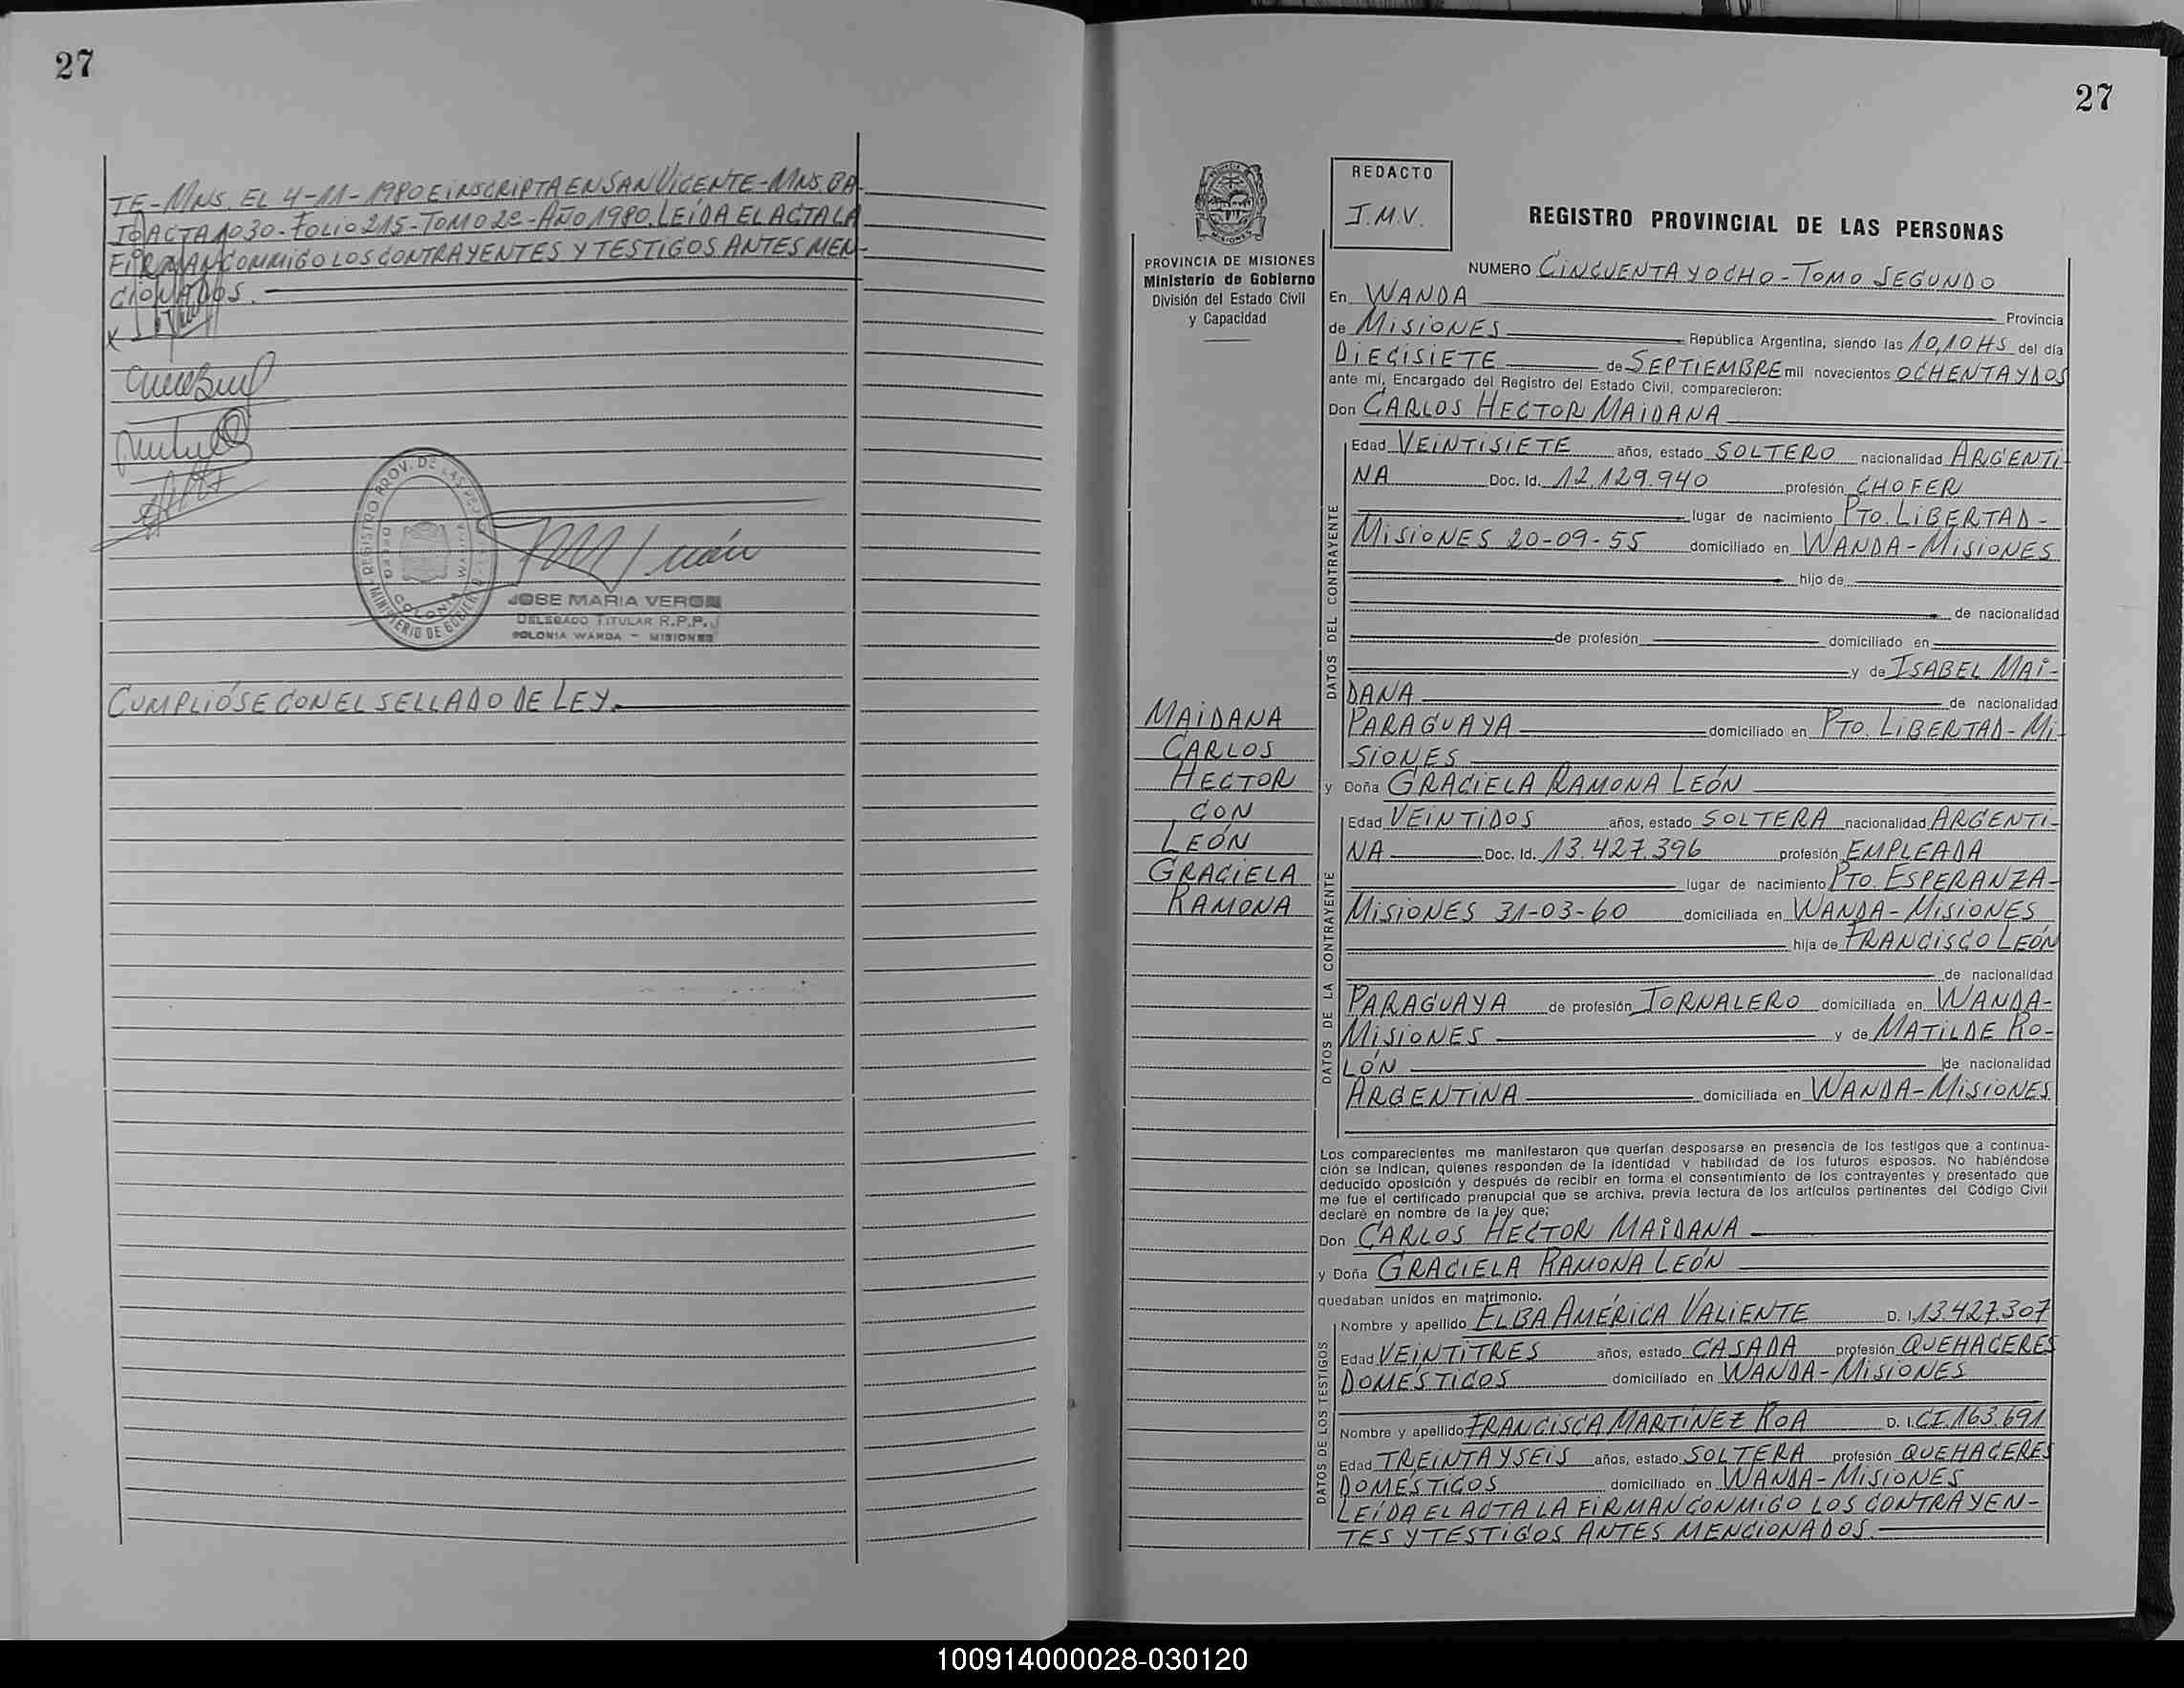 27
TE-MNS. EL 4-11-1980 E INSCRIPTA EN SAN VICENTE-MNS. BA
JO ACTA 1030-FOLIO 215-TOMO 2º-AÑO 1980. LEÍDA EL ACTA LA
FIRMAN CONMIGO LOS CONTRAYENTES Y TESTIGOS ANTES MEN-
CIONADOS.
REGISTRO PROV. DE LAS
MINISTERIO DE
COLONIA WANDA
JOSE MARIA VERON
DELEGADO TITULAR R.P.P.
COLONIA WANDA - MISIONES
CUMPLIÓSE CON EL SELLADO DE LEY.
27
PROVINCIA DE MISIONES
Ministerio de Gobierno
División del Estado Civil
y Capacidad
REDACTO
J.M.V.
REGISTRO PROVINCIAL DE LAS PERSONAS
NUMERO CINCUENTA Y OCHO-TOMO SEGUNDO
En WANDA Provincia
de MISIONES República Argentina, siendo las 10,10 HS del día
DIECISIETE de SEPTIEMBRE mil novecientos OCHENTA Y DOS
ante mí, Encargado del Registro del Estado Civil, comparecieron:
Don CARLOS HECTOR MAIDANA
DATOS DEL CONTRAYENTE
Edad VEINTISIETE años, estado SOLTERO nacionalidad ARGENTI-
NA Doc. Id. 12.129.940 profesión CHOFER
lugar de nacimiento PTO. LIBERTAD-
MISIONES 20-09-55 domiciliado en WANDA-MISIONES
hijo de
de nacionalidad
de profesión domiciliado en
y de ISABEL MAI-
DANA de nacionalidad
PARAGUAYA domiciliado en PTO. LIBERTAD-MI-
SIONES
MAIDANA
CARLOS
HECTOR
CON
LEÓN
GRACIELA
RAMONA
y Doña GRACIELA RAMONA LEÓN
DATOS DE LA CONTRAYENTE
Edad VEINTIDOS años, estado SOLTERA nacionalidad ARGENTI-
NA Doc. Id. 13.427.396 profesión EMPLEADA
lugar de nacimiento PTO. ESPERANZA-
MISIONES 31-03-60 domiciliada en WANDA-MISIONES
hija de FRANCISCO LEÓN
de nacionalidad
PARAGUAYA de profesión JORNALERO domiciliada en WANDA-
MISIONES y de MATILDE RO-
LÓN de nacionalidad
ARGENTINA domiciliada en WANDA-MISIONES
Los comparecientes me manifestaron que querían desposarse en presencia de los testigos que a continua-
ción se indican, quienes responden de la identidad y habilidad de los futuros esposos. No habiéndose
deducido oposición y después de recibir en forma el consentimiento de los contrayentes y presentado que
me fue el certificado prenupcial que se archiva, previa lectura de los artículos pertinentes del Código Civil
declaré en nombre de la ley que;
Don CARLOS HECTOR MAIDANA
y Doña GRACIELA RAMONA LEÓN
quedaban unidos en matrimonio.
DATOS DE LOS TESTIGOS
Nombre y apellido ELBA AMÉRICA VALIENTE D. I. 13.427.307
Edad VEINTITRES años, estado CASADA profesión QUEHACERES
DOMÉSTICOS domiciliado en WANDA-MISIONES
Nombre y apellido FRANCISCA MARTÍNEZ ROA D. I. CI.163.691
Edad TREINTA Y SEIS años, estado SOLTERA profesión QUEHACERES
DOMÉSTICOS domiciliado en WANDA-MISIONES
LEÍDA EL ACTA LA FIRMAN CONMIGO LOS CONTRAYEN-
TES Y TESTIGOS ANTES MENCIONADOS.
100914000028-030120